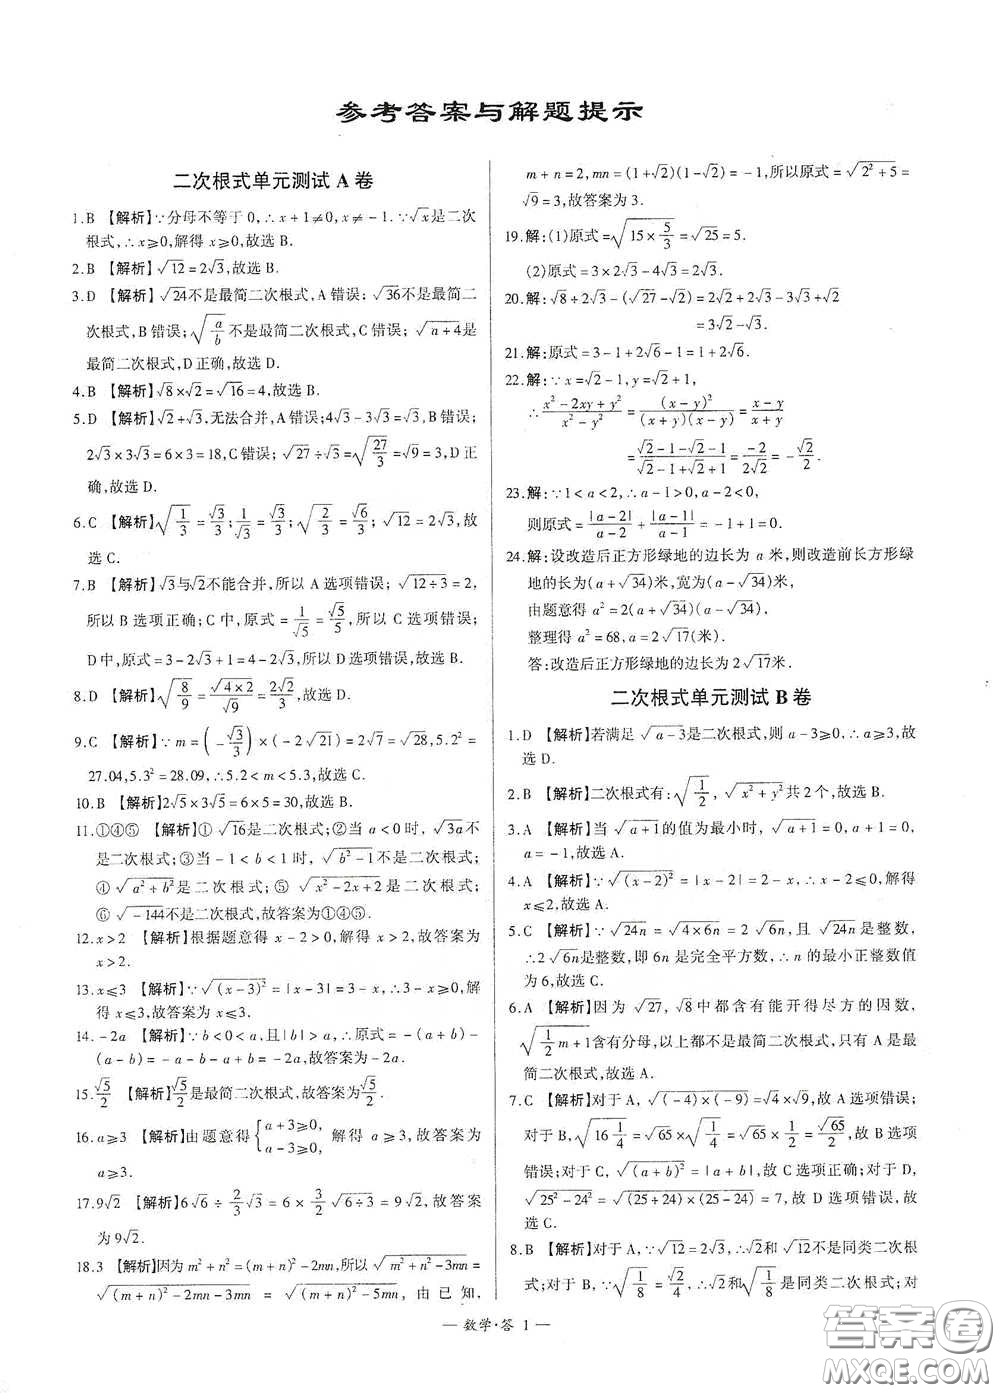 参考答案与解题提示
二次根式单元测试 A 卷
1.B 【解析】∵分母不等于 0,∴x+1≠0,x≠-1.∵√x是二次
根式,∴x≥0,解得 x≥0,故选 B.
2.B 【解析】√12=2√3,故选 B.
3.D 【解析】√24不是最简二次根式,A 错误;√36不是最简二
次根式,B 错误;√(a/b)不是最简二次根式,C 错误;√(a+4)是
最简二次根式,D 正确,故选 D.
4.B 【解析】√8×√2=√16=4,故选 B.
5.D 【解析】√2+√3,无法合并,A 错误;4√3-3√3=√3,B 错误;
2√3×3√3=6×3=18,C 错误;√27÷√3=√(27/3)=√9=3,D 正
确,故选 D.
6.C 【解析】√(1/3)=√3/3;1/√3=√3/3;√(2/3)=√6/3;√12=2√3,故
选 C.
7.B 【解析】√3与√2不能合并,所以 A 选项错误;√(12÷3)=2,
所以 B 选项正确;C 中,原式=1/√5=√5/5,所以 C 选项错误;
D 中,原式=3-2√3+1=4-2√3,所以 D 选项错误,故选 B.
8.D 【解析】√(8/9)=√(4×2)/√9=2√2/3,故选 D.
9.C 【解析】∵m=(-√3/3)×(-2√21)=2√7=√28,5.2²=
27.04,5.3²=28.09,∴5.2<m<5.3,故选 C.
10.B 【解析】2√5×3√5=6×5=30,故选 B.
11.①④⑤ 【解析】①√16是二次根式;②当 a<0时,√3a不
是二次根式;③当-1<b<1时,√(b²-1)不是二次根式;
④√(a²+b²)是二次根式;⑤√(x²-2x+2)是二次根式;
⑥√-144不是二次根式,故答案为①④⑤.
12.x>2 【解析】根据题意得 x-2>0,解得 x>2,故答案为
x>2.
13.x≤3 【解析】∵√(x-3)²=|x-3|=3-x,∴3-x≥0,解
得 x≤3,故答案为 x≤3.
14.-2a 【解析】∵b<0<a,且|b|>a,∴原式=-(a+b)-
(a-b)=-a-b-a+b=-2a,故答案为-2a.
15.√5/2 【解析】√5/2是最简二次根式,故答案为√5/2.
16.a≥3 【解析】由题意得{a+3≥0,a-3≥0, 解得 a≥3,故答案为
a≥3.
17.9√2 【解析】6√6÷2/3√3=6×3/2√(6÷3)=9√2,故答案
为 9√2.
18.3 【解析】因为 m²+n²=(m+n)²-2mn,所以√(m²+n²-3mn)=
√((m+n)²-2mn-3mn)=√((m+n)²-5mn),由已知,
m+n=2,mn=(1+√2)(1-√2)=-1,所以原式=√(2²+5)=
√9=3,故答案为 3.
19.解:(1)原式=√(15×5/3)=√25=5.
(2)原式=3×2√3-4√3=2√3.
20.解:√8+2√3-(√27-√2)=2√2+2√3-3√3+√2
=3√2-√3.
21.解:原式=3-1+2√6-1=1+2√6.
22.解:∵x=√2-1,y=√2+1,
∴(x²-2xy+y²)/(x²-y²)=(x-y)²/((x+y)(x-y))=(x-y)/(x+y)
=(√2-1-√2-1)/(√2-1+√2+1)=-2/(2√2)=-√2/2.
23.解:∵1<a<2,∴a-1>0,a-2<0,
则原式=|a-2|/(a-2)+|a-1|/(a-1)=-1+1=0.
24.解:设改造后正方形绿地的边长为 a 米,则改造前长方形绿
地的长为(a+√34)米,宽为(a-√34)米,
由题意得 a²=2(a+√34)(a-√34),
整理得 a²=68,a=2√17(米).
答:改造后正方形绿地的边长为 2√17米.
二次根式单元测试 B 卷
1.D 【解析】若满足√(a-3)是二次根式,则 a-3≥0,∴a≥3,故
选 D.
2.B 【解析】二次根式有:√(1/2),√(x²+y²)共 2 个,故选 B.
3.A 【解析】当√(a+1)的值为最小时,√(a+1)=0,a+1=0,
a=-1,故选 A.
4.A 【解析】∵√(x-2)²=|x-2|=2-x,∴2-x≥0,解得
x≤2,故选 A.
5.C 【解析】∵√24n=√(4×6n)=2√6n,且√24n是整数,
∴2√6n是整数,即 6n 是完全平方数,∴n 的最小正整数值
为 6,故选 C.
6.A 【解析】因为√27,√8中都含有能开得尽方的因数,
√(1/2m+1)含有分母,以上都不是最简二次根式,只有 A 是最
简二次根式,故选 A.
7.C 【解析】对于 A,√((-4)×(-9))=√4×√9,故 A 选项错误;
对于 B,√(16 1/4)=√65×√(1/4)=√65×1/2=√65/2,故 B 选项
错误;对于 C,√(a+b)²=|a+b|,故 C 选项正确;对于 D,
√(25²-24²)=√((25+24)×(25-24))=7,故 D 选项错误,故
选 C.
8.B 【解析】对于 A,∵√12=2√3,∴√2和√12不是同类二次根
式;对于 B,∵√(1/8)=√2/4,∴√2和√(1/8)是同类二次根式;对
— 数学·答 1 —
答案圈
MXQE.COM